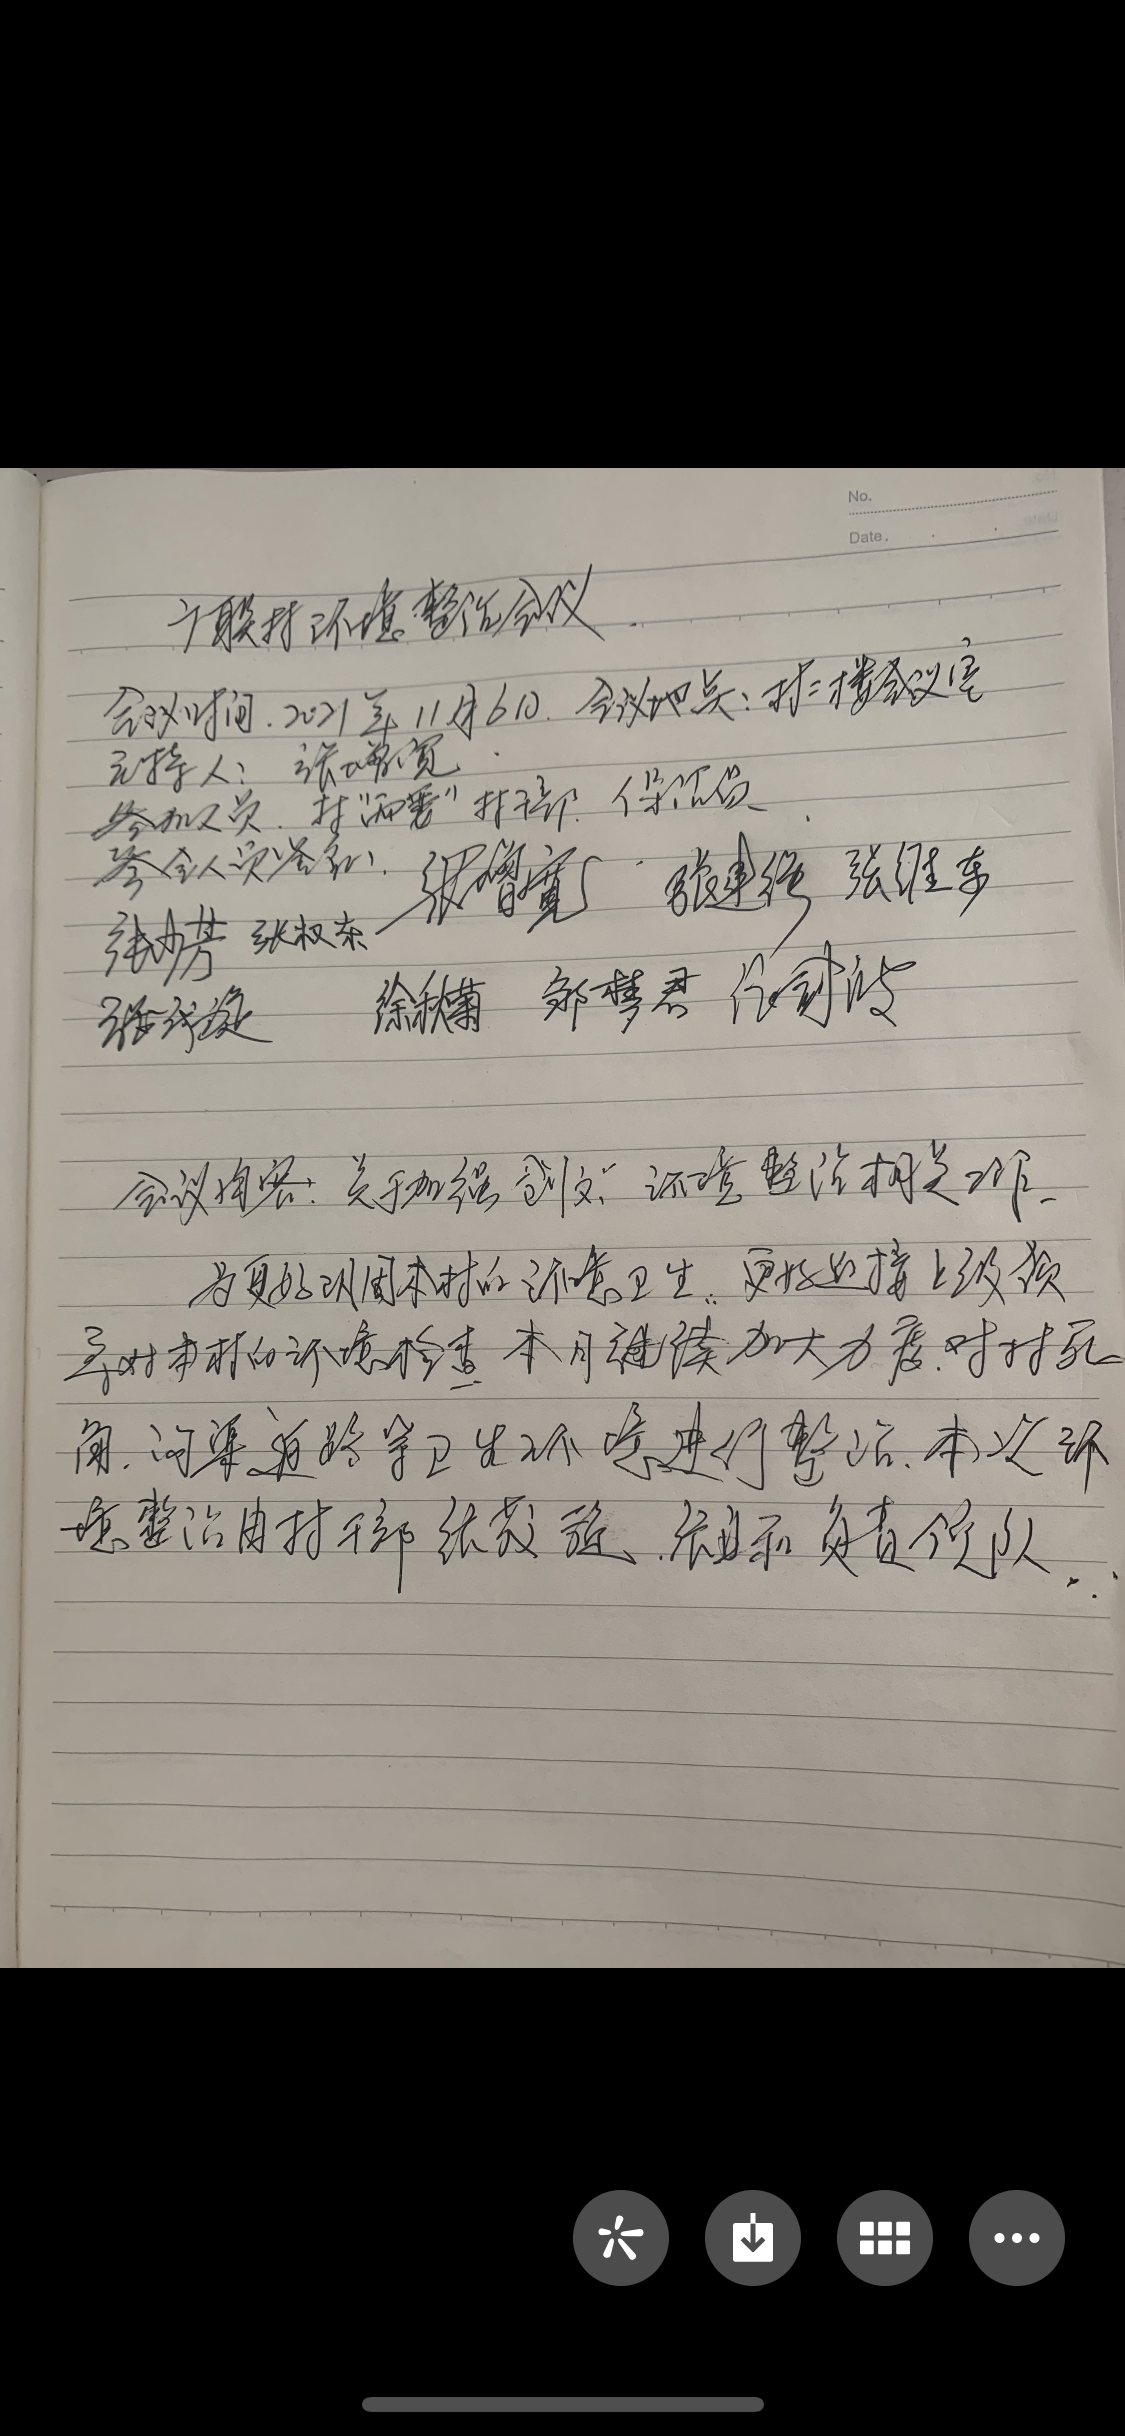 No.
Date.
广联村环境整治会议.
会议时间.2021年11月6日. 会议地点:村二楼会议室
主持人: 张增宽
参加人员. 村"两委"村干部. 保洁员
参会人员签到: 张增宽 张建 张维东
张 芳 张权东
张 徐秋菊 邹梦君 任 波
会议内容: 关于加强创文、环境整治相关工作
为更好巩固本村的环境卫生.更好迎接上级领
导对本村的环境检查 本月继续加大力度.对村死
角.河渠道路等卫生环境进行整治.本次环
境整治由村干部张 . 张 和负责领队..